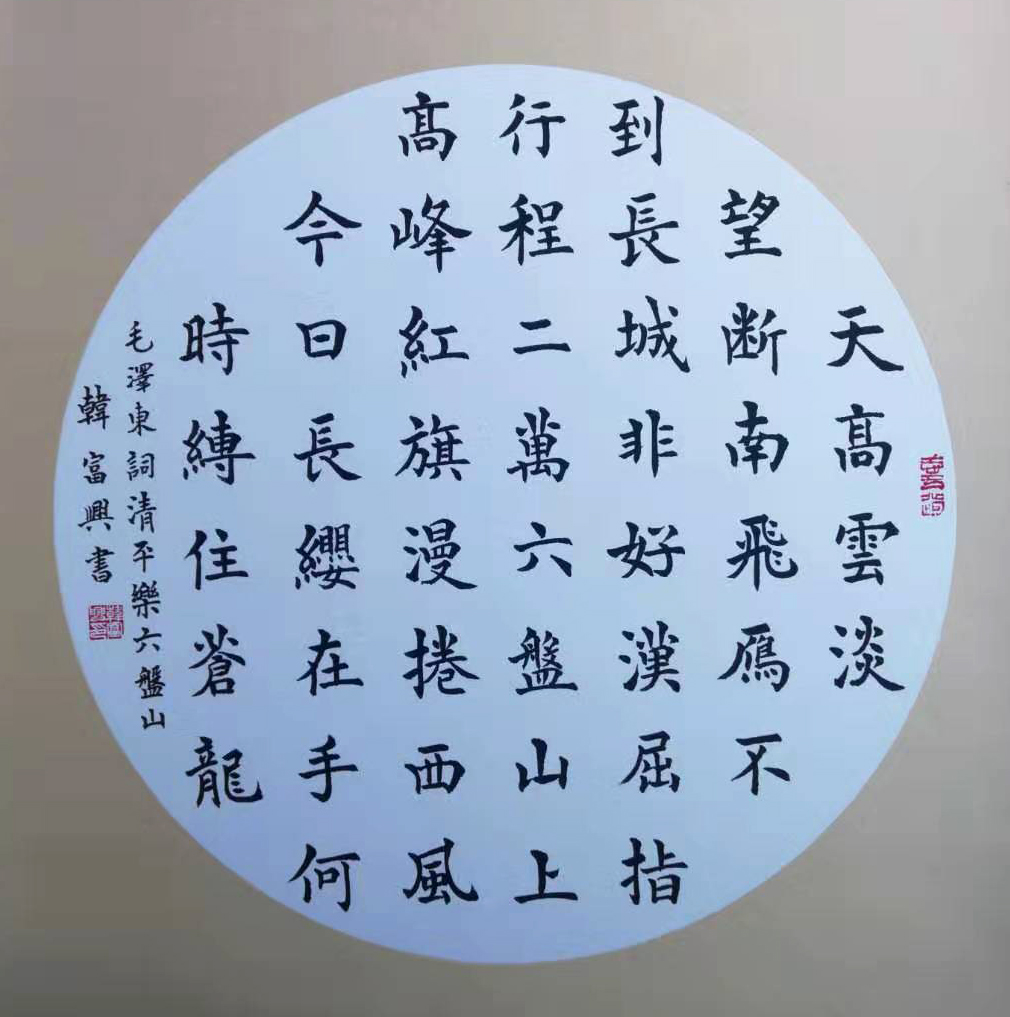 天高雲淡
望断南飛鴈不
到長城非好漢屈指
行程二萬六盤山上
高峰紅旗漫捲西風
今日長纓在手何
時縛住蒼龍
毛澤東詞清平樂六盤山
韓富興書